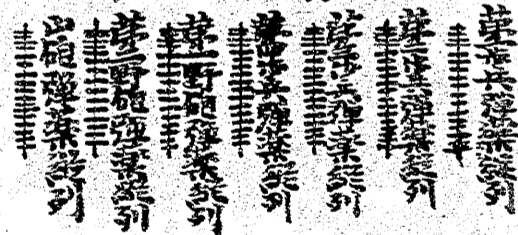 第一歩兵彈藥縱列
第二歩兵彈藥縱列
第三歩兵彈藥縱列
第四歩兵彈藥縱列
第一野砲彈藥縱列
第二野砲彈藥縱列
山砲彈藥縱列